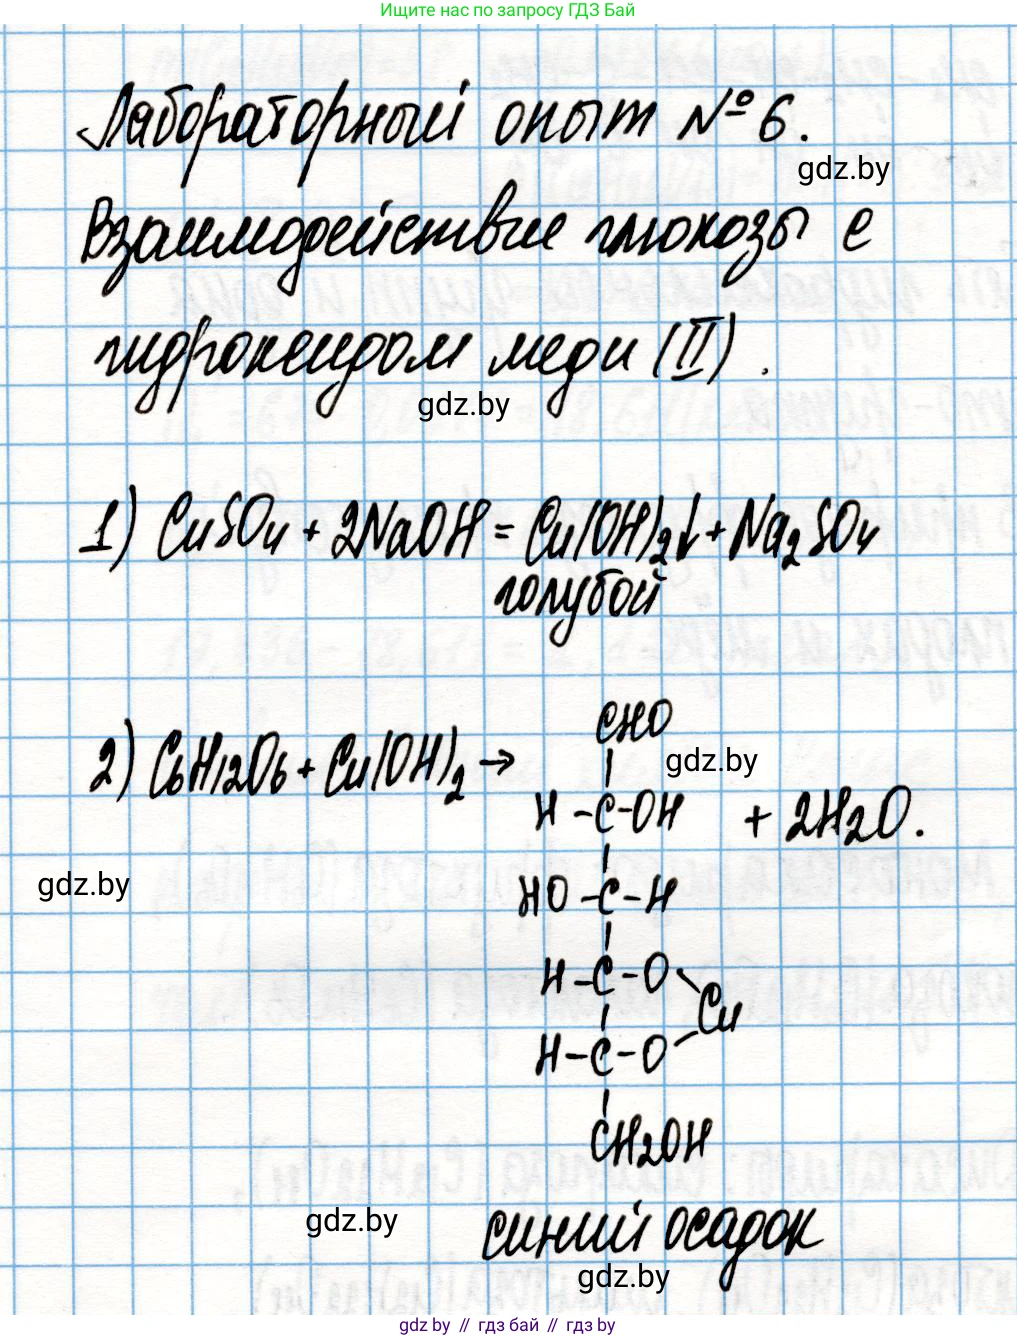 Ищите нас по запросу ГДЗ Бай
Лабораторный опыт №6.
gdz.by
Взаимодействие глюкозы с
гидроксидом меди (II).
gdz.by
1) CuSO4 + 2NaOH = Cu(OH)2↓ + Na2SO4
голубой
CHO
2) C6H12O6 + Cu(OH)2 →
gdz.by
H - C - OH + 2H2O.
gdz.by
HO - C - H
H - C - O
Cu
H - C - O
CH2OH
gdz.by
синий осадок
gdz.by
gdz.by // гдз бай // gdz.by